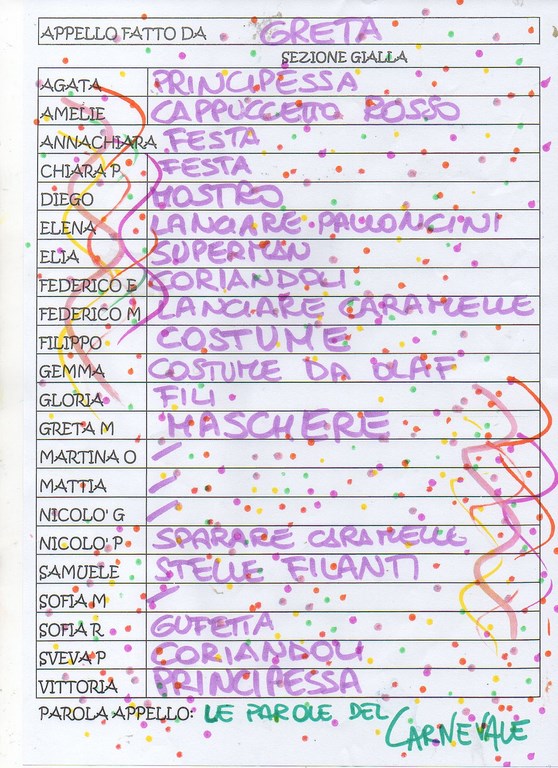 APPELLO FATTO DA GRETA
SEZIONE GIALLA
AGATA PRINCIPESSA
AMELIE CAPPUCCETTO ROSSO
ANNACHIARA FESTA
CHIARA P FESTA
DIEGO MOSTRO
ELENA LANCIARE PALLONCINI
ELIA SUPERMAN
FEDERICO E CORIANDOLI
FEDERICO M LANCIARE CARAMELLE
FILIPPO COSTUME
GEMMA COSTUME DA OLAF
GLORIA FILI
GRETA M MASCHERE
MARTINA O /
MATTIA /
NICOLO' G /
NICOLO' P SPARARE CARAMELLE
SAMUELE STELLE FILANTI
SOFIA M /
SOFIA R GUFETTA
SVEVA P CORIANDOLI
VITTORIA PRINCIPESSA
PAROLA APPELLO: LE PAROLE DEL CARNEVALE